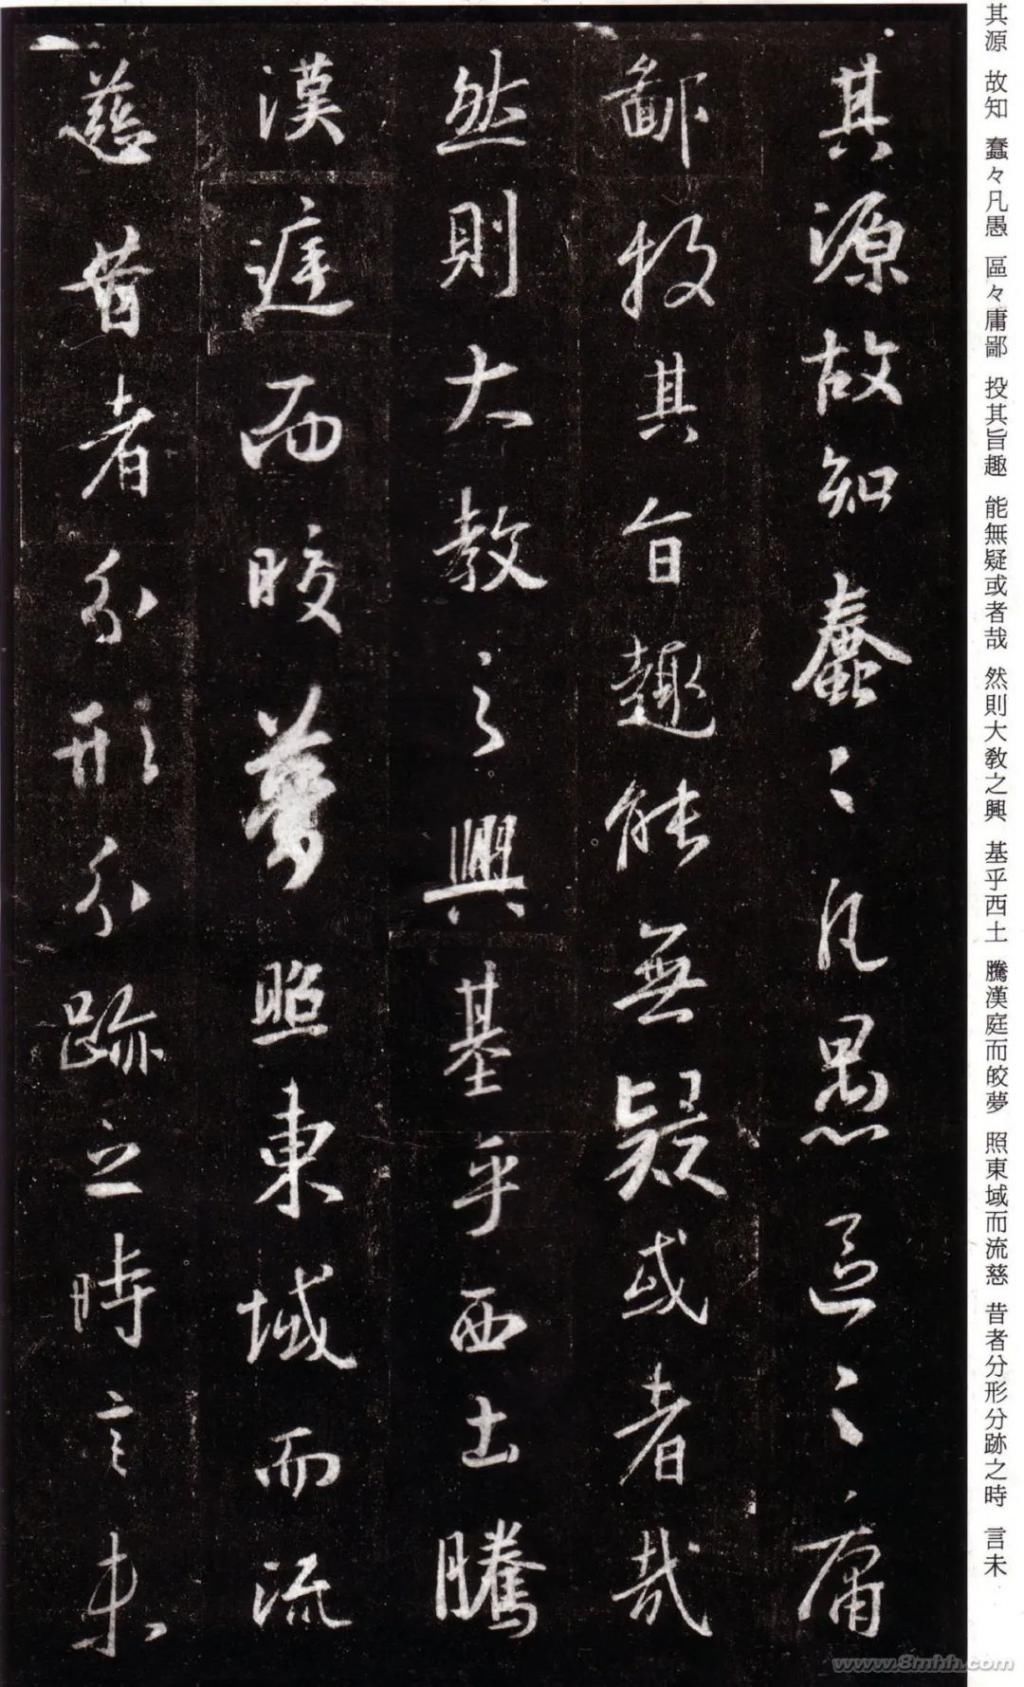 其源 故知 蠢々凡愚 區々庸鄙 投其旨趣 能無疑或者哉 然則大教之興 基乎西土 騰漢庭而皎夢 照東域而流慈 昔者分形分跡之時 言未
其源故知蠢〻凡愚區〻庸
鄙投其旨趣能無疑或者哉
然則大教之興基乎西土騰
漢庭而皎夢照東域而流
慈昔者分形分跡之時言未
www.8mhh.com